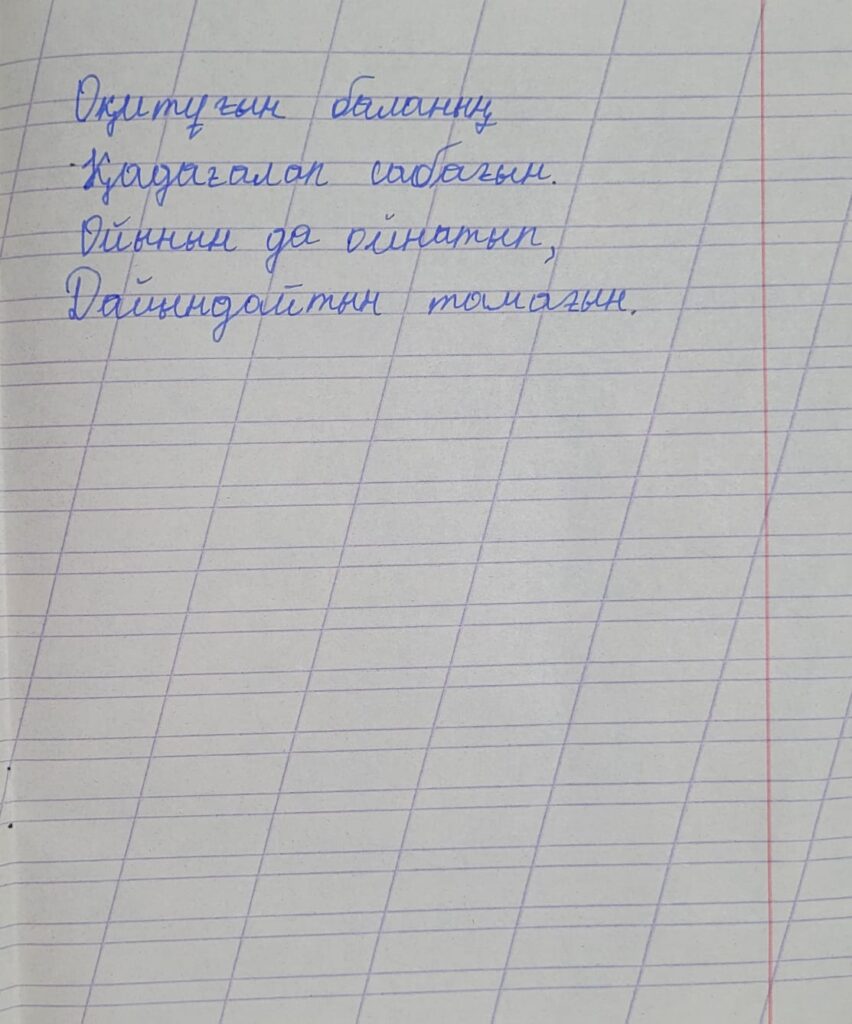 Оқитұғын баланың
Қадағалап сабағын.
Ойынын да ойнатып,
Дайындайтын тамағын.